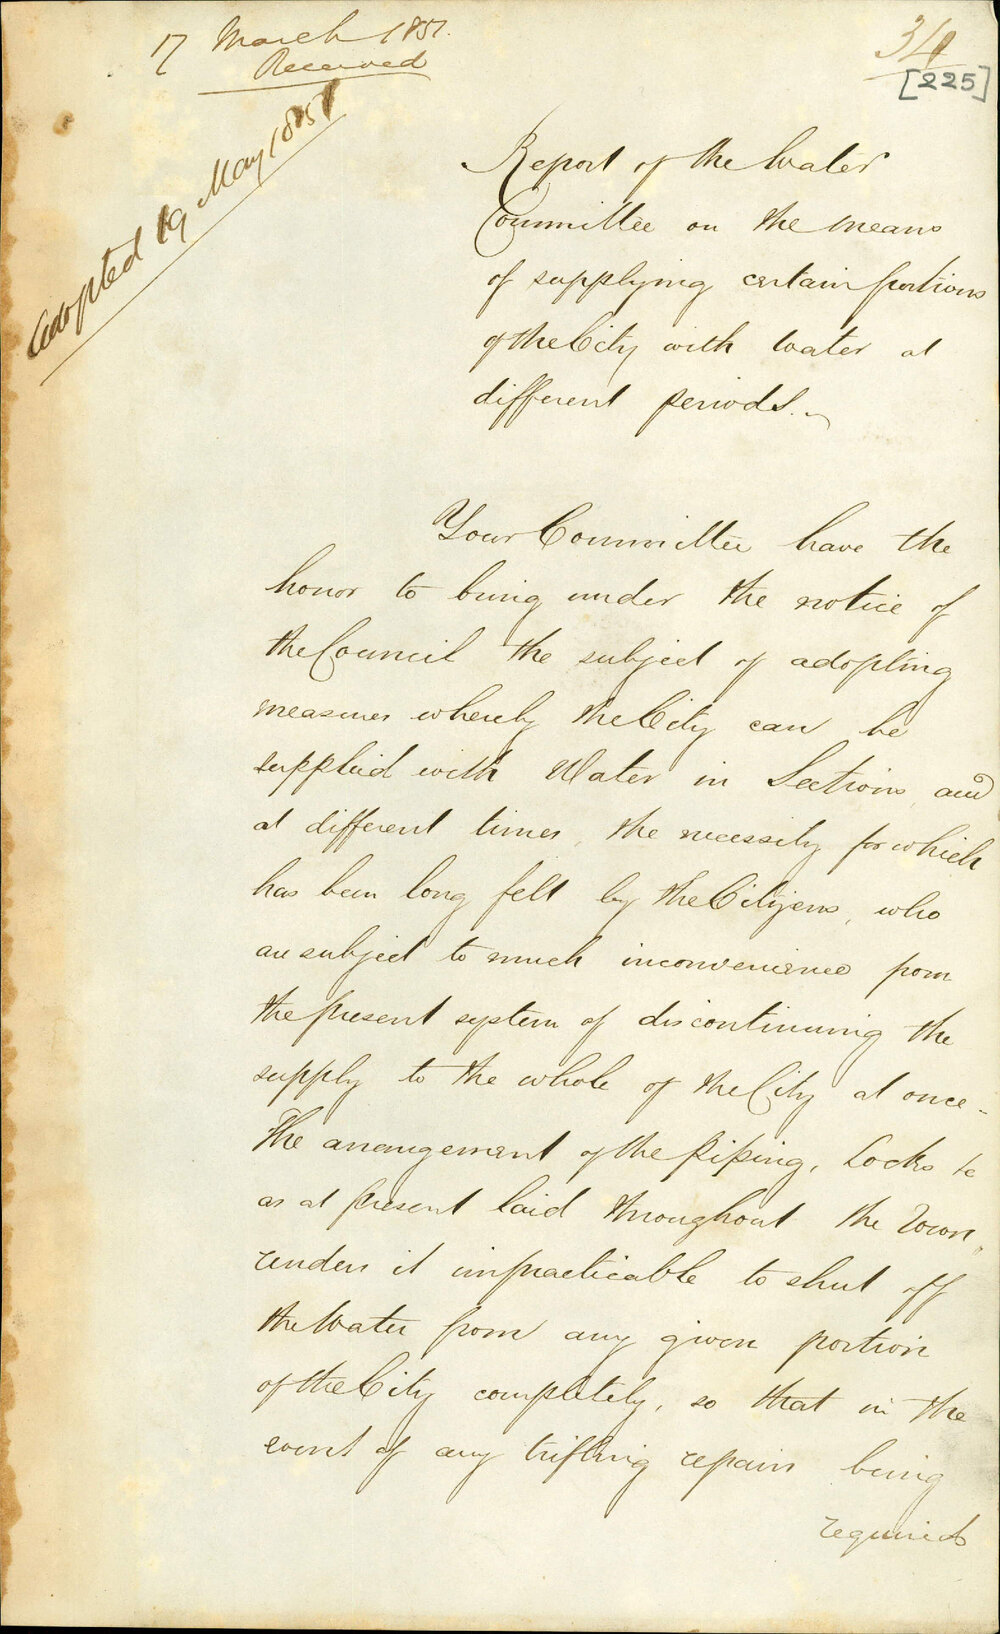 17 March 1851.
Received
34
[225]
Adopted 19 May 1851
Report of the Water
Committee on the means
of supplying certain portions
of the City with Water at
different periods.
Your Committee have the
honor to bring under the notice of
the Council the subject of adopting
measures whereby the City can be
supplied with Water in Sections and
at different times, the necessity for which
has been long felt by the Citizens, who
are subject to much inconvenience from
the present system of discontinuing the
supply to the whole of the City at once -
The arrangement of the piping, Cocks &c
as at present laid throughout the Town,
renders it impracticable to shut off
the Water from any given portion
of the City completely, so that in the
event of any trifling repairs being
required